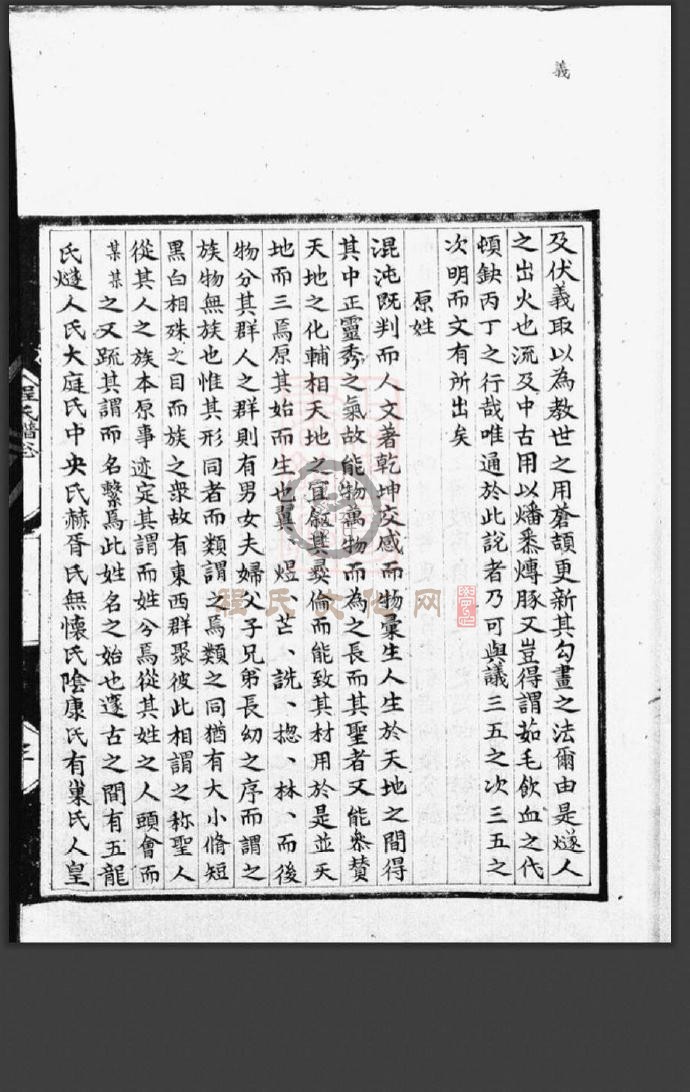 義
及伏義取以為教世之用蒼頡更新其勾畫之法爾由是燧人
之出火也流及中古用以燔黍㷟豚又豈得謂茹毛飲血之代
頓鈌丙丁之行哉唯通於此說者乃可與議三五之次三五之
次明而文有所出矣
原姓
混沌既判而人文著乾坤交感而物彙生人生於天地之間得
其中正靈秀之氣故能物萬物而為之長而其聖者又能叅賛
天地之化輔相天地之宜敘其彞倫而能致其材用於是並天
地而三焉原其始而生也冀、煜、芒、詵、揔、林、而後
物分其群人之群則有男女夫婦父子兄弟長幼之序而謂之
族物無族也惟其形同者而類謂之焉類之同猶有大小脩短
黑白相殊之目而族之衆故有東西群聚彼此相謂之称聖人
從其人之族本原事迹定其謂而姓兮焉從其姓之人頭會而
某某之又疏其謂而名繫焉此姓名之始也邃古之間有五龍
氏燧人氏大庭氏中央氏赫胥氏無懷氏陰康氏有巢氏人皇
程氏譜
程氏文化网